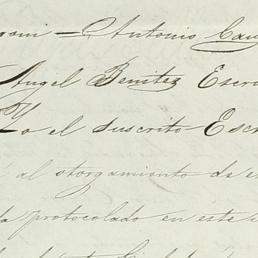 Antonio
Angel Benitez Escri
Yo el suscrito Escri
al otorgamiento de es
protocolado en este